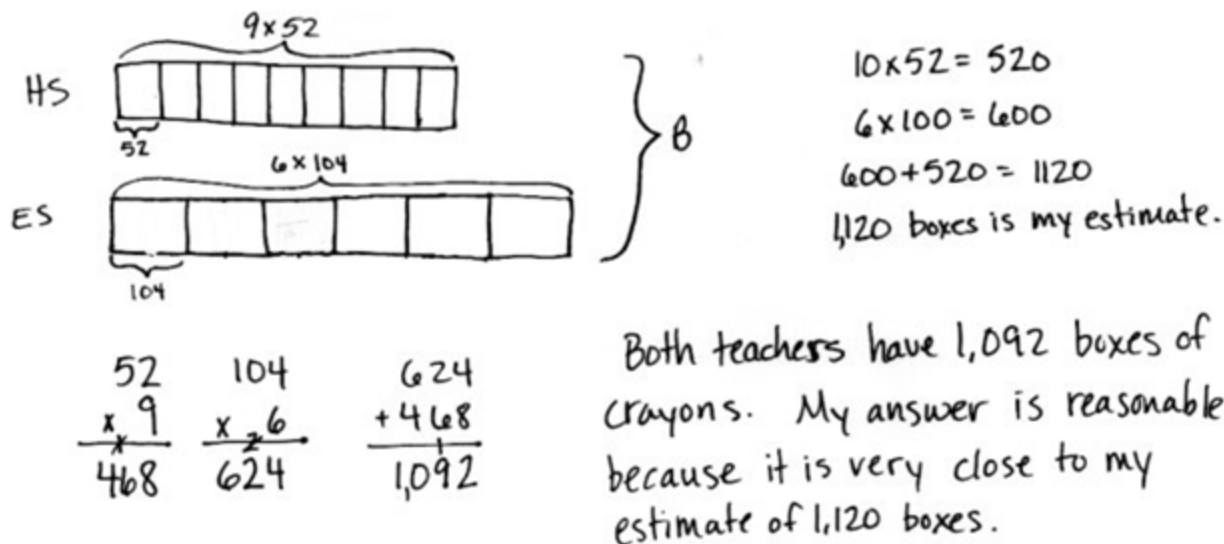 9 x 52
HS
52
6 x 104
ES
104
B
10 x 52 = 520
6 x 100 = 600
600 + 520 = 1120
1,120 boxes is my estimate.
52
x 9
468
104
x 6
2
624
624
+ 468
1
1,092
Both teachers have 1,092 boxes of
crayons. My answer is reasonable
because it is very close to my
estimate of 1,120 boxes.